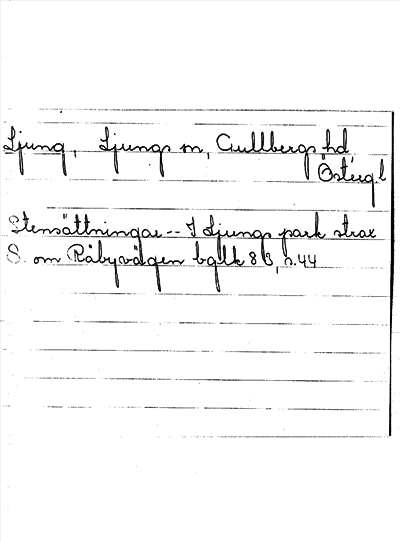 Ljung, Ljungs sn, Gullbergs hd
Östergl
Stensättningar -- I Ljungs park strax
S. om Råbyvägen bglk 83, s. 44